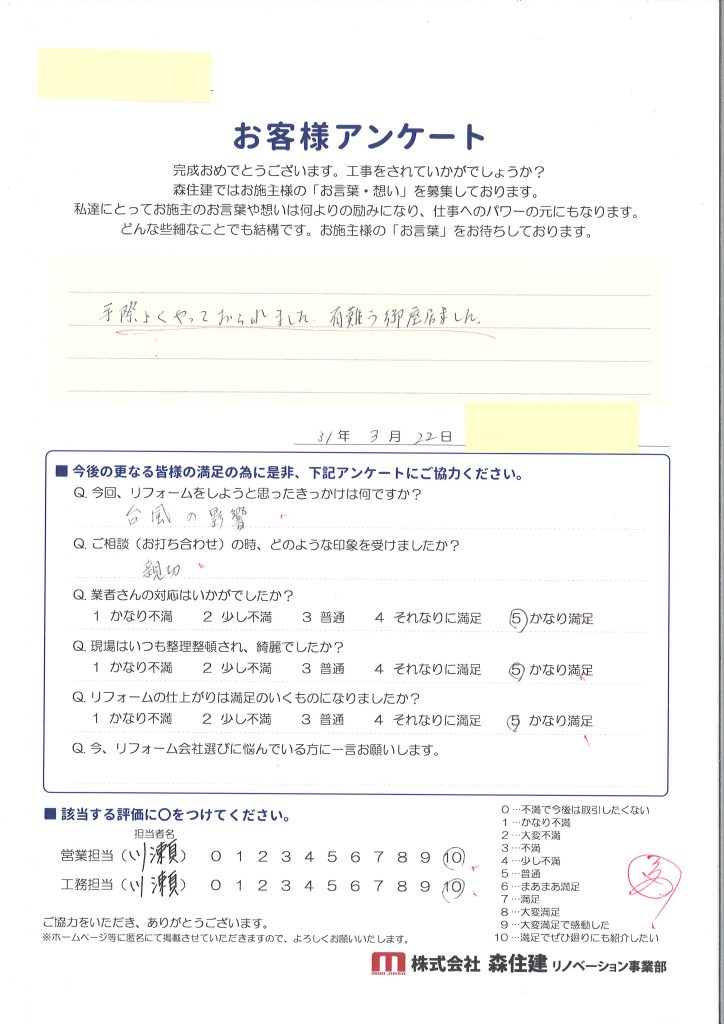 お客様アンケート
完成おめでとうございます。工事をされていかがでしょうか？
森住建ではお施主様の「お言葉・想い」を募集しております。
私達にとってお施主のお言葉や想いは何よりの励みになり、仕事へのパワーの元にもなります。
どんな些細なことでも結構です。お施主様の「お言葉」をお待ちしております。
手際よくやっておられました。有難う御座居ました。
31年 3月 22日
■ 今後の更なる皆様の満足の為に是非、下記アンケートにご協力ください。
Q. 今回、リフォームをしようと思ったきっかけは何ですか？
台風の影響
Q. ご相談（お打ち合わせ）の時、どのような印象を受けましたか？
親切
Q. 業者さんの対応はいかがでしたか？
1 かなり不満 2 少し不満 3 普通 4 それなりに満足 5 かなり満足
Q. 現場はいつも整理整頓され、綺麗でしたか？
1 かなり不満 2 少し不満 3 普通 4 それなりに満足 5 かなり満足
Q. リフォームの仕上がりは満足のいくものになりましたか？
1 かなり不満 2 少し不満 3 普通 4 それなりに満足 5 かなり満足
Q. 今、リフォーム会社選びに悩んでいる方に一言お願いします。
■ 該当する評価に〇をつけてください。
担当者名
営業担当（川瀬） 0 1 2 3 4 5 6 7 8 9 10
工務担当（川瀬） 0 1 2 3 4 5 6 7 8 9 10
0…不満で今後は取引したくない
1…かなり不満
2…大変不満
3…不満
4…少し不満
5…普通
6…まあまあ満足
7…満足
8…大変満足
9…大変満足で感動した
10…満足でぜひ廻りにも紹介したい
ご協力をいただき、ありがとうございます。
※ホームページ等に匿名にて掲載させていただきますので、よろしくお願いいたします。
MORI JUKEN 株式会社 森住建 リノベーション事業部